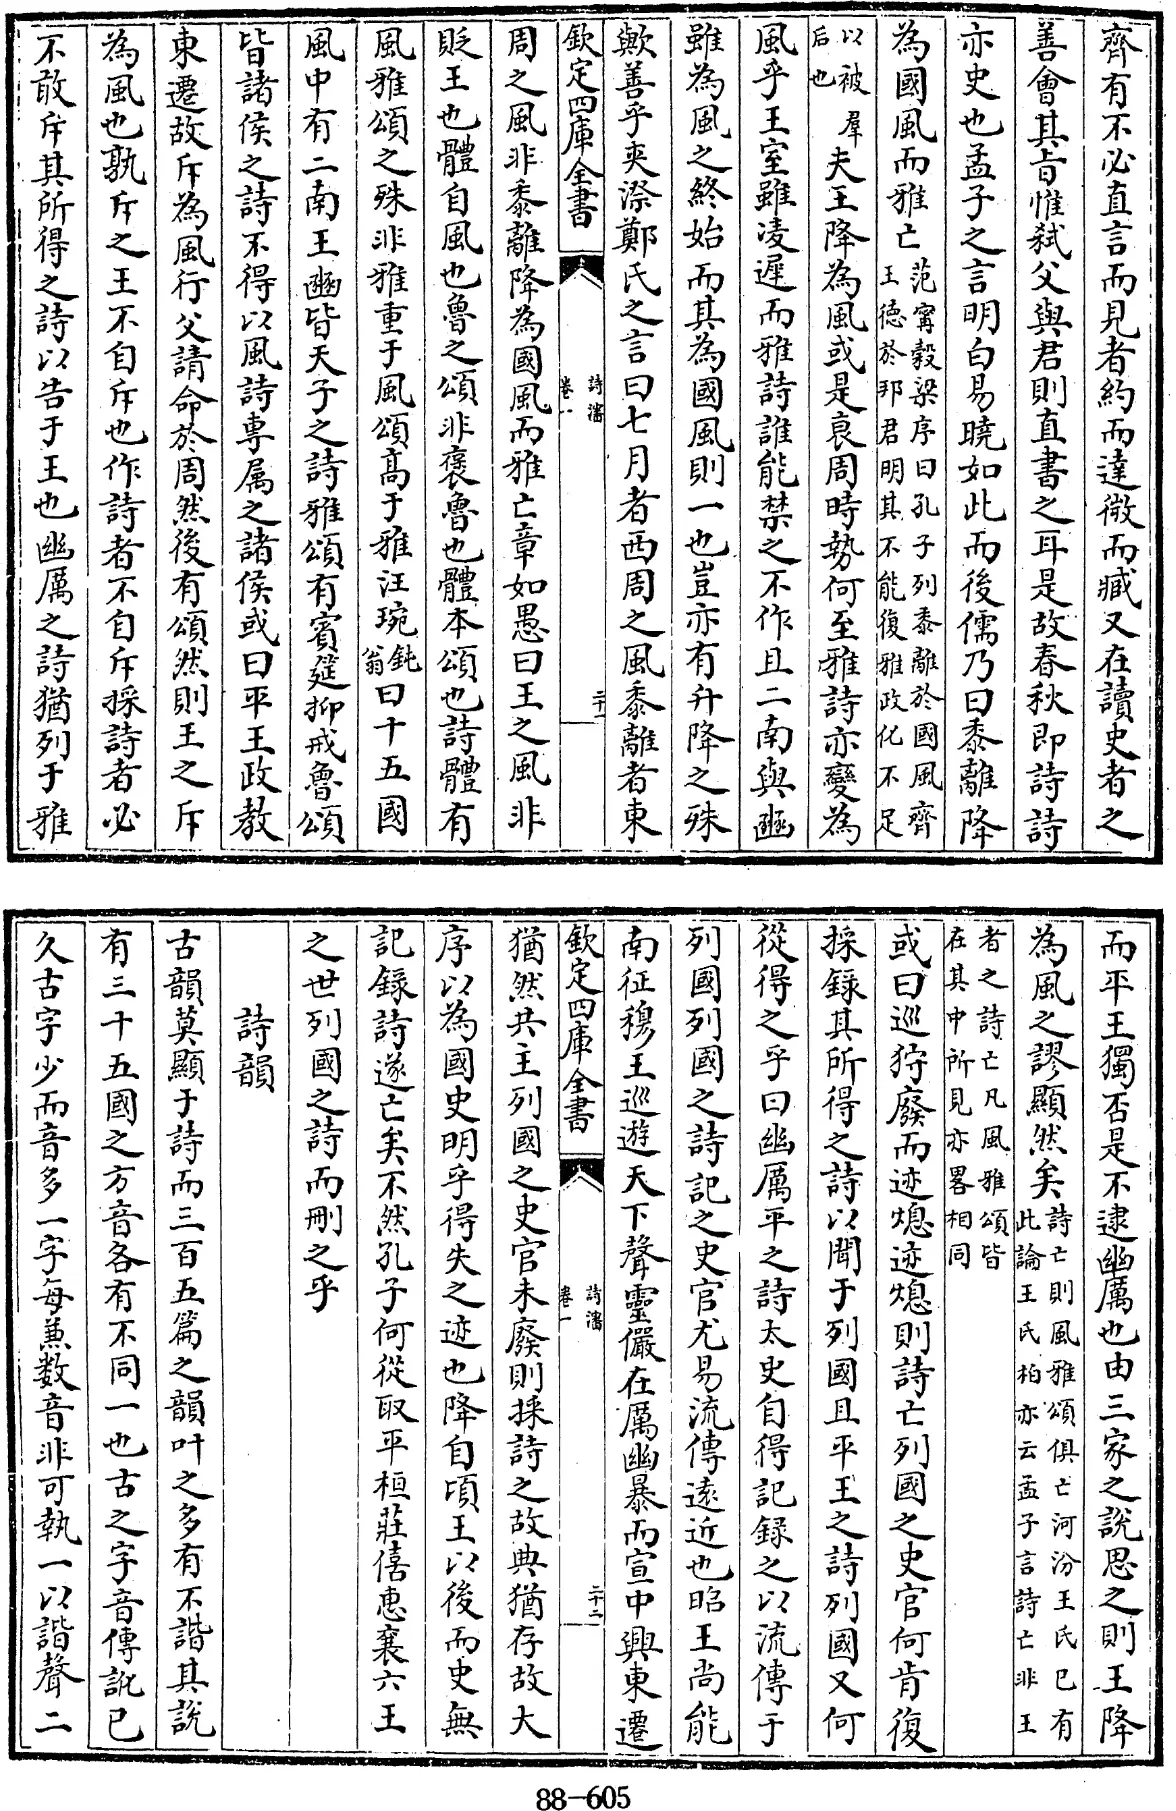 齊有不必直言而見者約而達微而臧又在讀史者之
善會其旨惟弑父與君則直書之耳是故春秋即詩詩
亦史也孟子之言明白易曉如此而後儒乃曰黍離降
為國風而雅亡范甯穀梁序曰孔子列黍離於國風齊王德於邦君明其不能復雅政化不足
以被羣后也夫王降為風或是衰周時勢何至雅詩亦變為
風乎王室雖凌遲而雅詩誰能禁之不作且二南與豳
雖為風之終始而其為國風則一也豈亦有升降之殊
歟善乎夾漈鄭氏之言曰七月者西周之風黍離者東
欽定四庫全書
詩瀋
卷一
二十一
周之風非黍離降為國風而雅亡章如愚曰王之風非
貶王也體自風也魯之頌非褒魯也體本頌也詩體有
風雅頌之殊非雅重于風頌高于雅汪琬鈍翁曰十五國
風中有二南王豳皆天子之詩雅頌有賓筵抑戒魯頌
皆諸侯之詩不得以風詩專属之諸侯或曰平王政教
東遷故斥為風行父請命於周然後有頌然則王之斥
為風也孰斥之王不自斥也作詩者不自斥採詩者必
不敢斥其所得之詩以告于王也幽厲之詩猶列于雅
而平王獨否是不逮幽厲也由三家之說思之則王降
為風之謬顯然矣詩亡則風雅頌俱亡河汾王氏已有此論王氏柏亦云孟子言詩亡非王
者之詩亡凡風雅頌皆在其中所見亦畧相同
或曰巡狩廢而迹熄迹熄則詩亡列國之史官何肯復
採録其所得之詩以聞于列國且平王之詩列國又何
從得之乎曰幽厲平之詩太史自得記録之以流傳于
列國列國之詩記之史官尤易流傳遠近也昭王尚能
南征穆王巡遊天下聲靈儼在厲幽暴而宣中興東遷
欽定四庫全書
詩瀋
卷一
二十二
猶然共主列國之史官未廢則採詩之故典猶存故大
序以為國史明乎得失之迹也降自頃王以後而史無
記録詩遂亡矣不然孔子何從取平桓莊僖惠襄六王
之世列國之詩而刪之乎
詩韻
古韻莫顯于詩而三百五篇之韻叶之多有不諧其說
有三十五國之方音各有不同一也古之字音傳訛已
久古字少而音多一字每兼数音非可執一以諧聲二
88-605